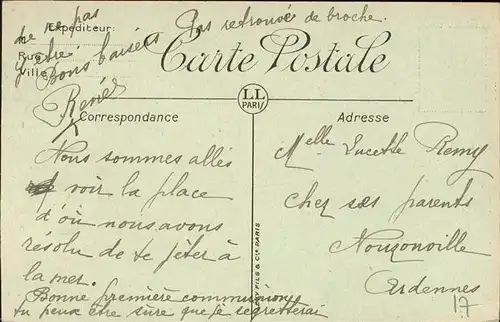 Pas retrouvée de broche.
Carte Postale
Expéditeur:
Rue
Ville
ne pas
y être
Bons baisers
Renée
LL
PARIS
Correspondance
Nous sommes allés
voir la place
d'où nous avons
résolu de te jeter à
la mer.
Bonne première communion
tu peux être sûre que je regretterai
LEVY FILS & Cie PARIS
Adresse
Melle Lucette Remy
chez ses parents
Nouzonville
Ardennes
17